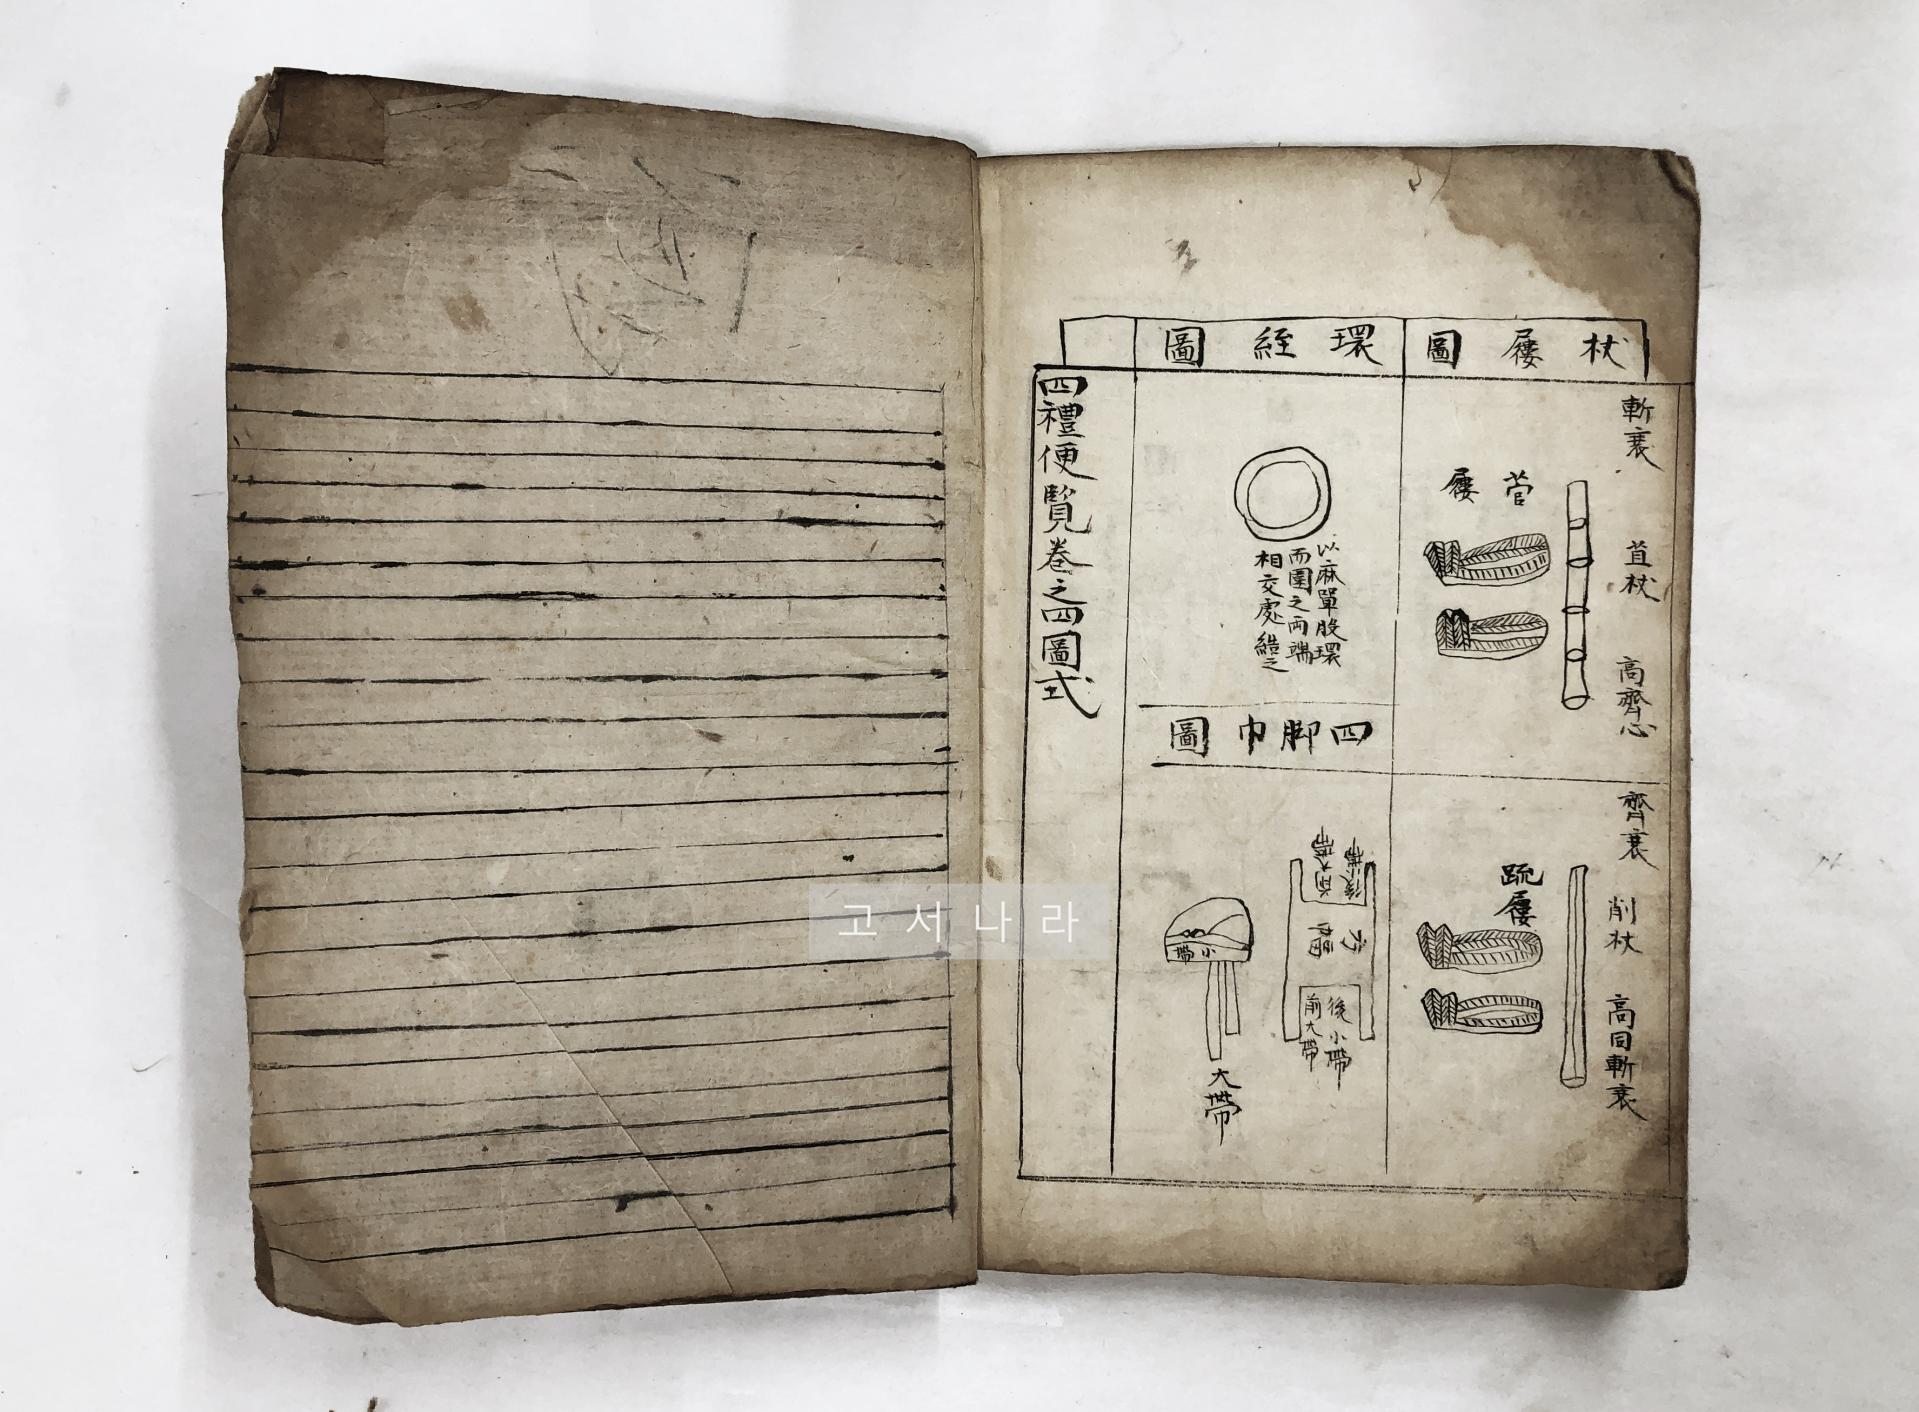 杖屨圖
斬衰 苴杖 高齊心
菅屨
齊衰 削杖 高同斬衰
疏屨
環絰圖
以麻單股環
而圍之兩端
相交處結之
四脚巾圖
後小帶
前大帶
方幅
後小帶
前大帶
小帶
大帶
四禮便覽卷之四圖式
고서나라